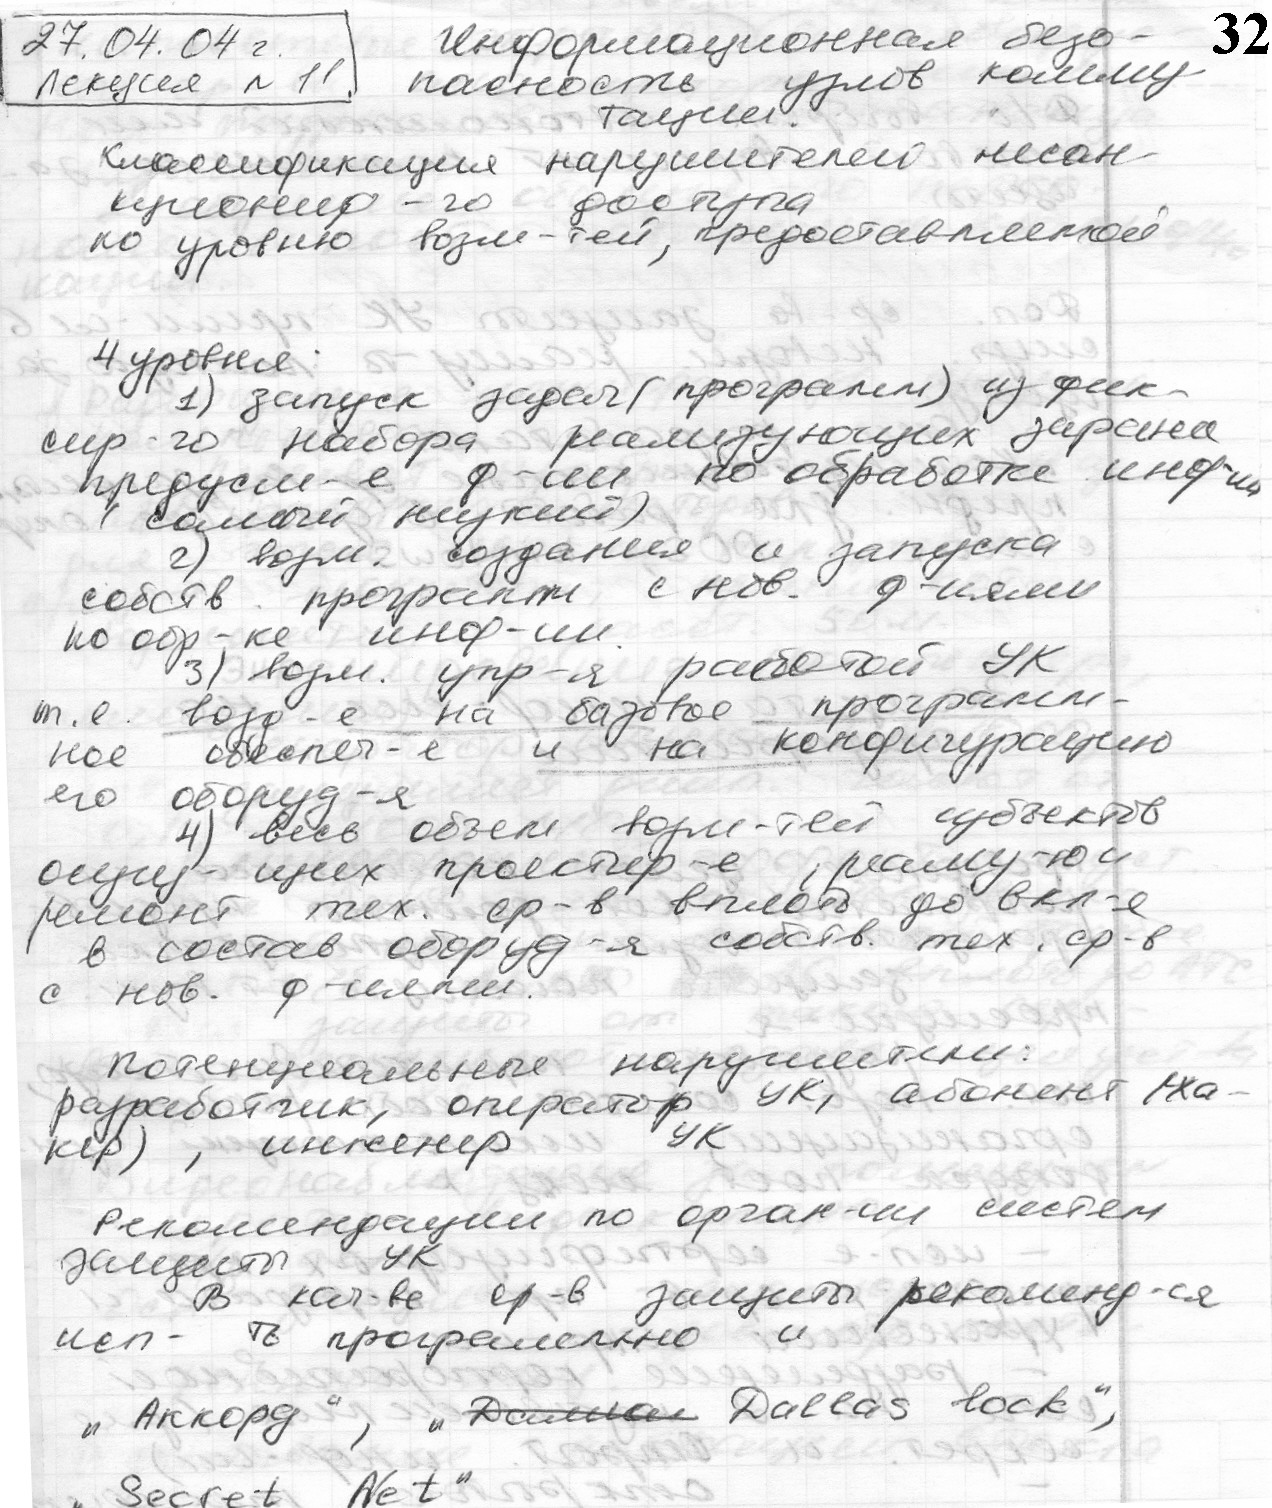 32
27.04.04 г. Информационная безо-
Лекция № 11 пасность узлов комму
тации.
Классификация нарушителей несан-
кционир-го доступа
по уровню возм-тей, предоставляемой
4 уровня:
1) запуск задач (программ) из фик-
сир-го набора реализующих заране
предусм-е ф-ии по обработке инф-ии
(самый низкий)
2) возм. создания и запуска
собств. программ с нов. ф-иями
по обр-ке инф-ии.
3) возм. упр-я работой УК
т.е. возд-е на базовое программ-
ное обеспеч-е и на конфигурацию
его оборуд-я
4) весь объем возм-тей субъектов
осущ-щих проектир-е, реализ-ю и
ремонт тех. ср-в вплоть до вкл-е
в состав оборуд-я собств. тех. ср-в
с нов. ф-иями.
Потенциальные нарушители:
разработчик, оператор УК, абонент (ха-
кер), инженер УК
Рекомендации по орган-ии систем
защиты УК
В кач-ве ср-в защиты рекоменд-ся
исп-ть программно и
„Аккорд“, „Dallas lock“,
„Secret Net“